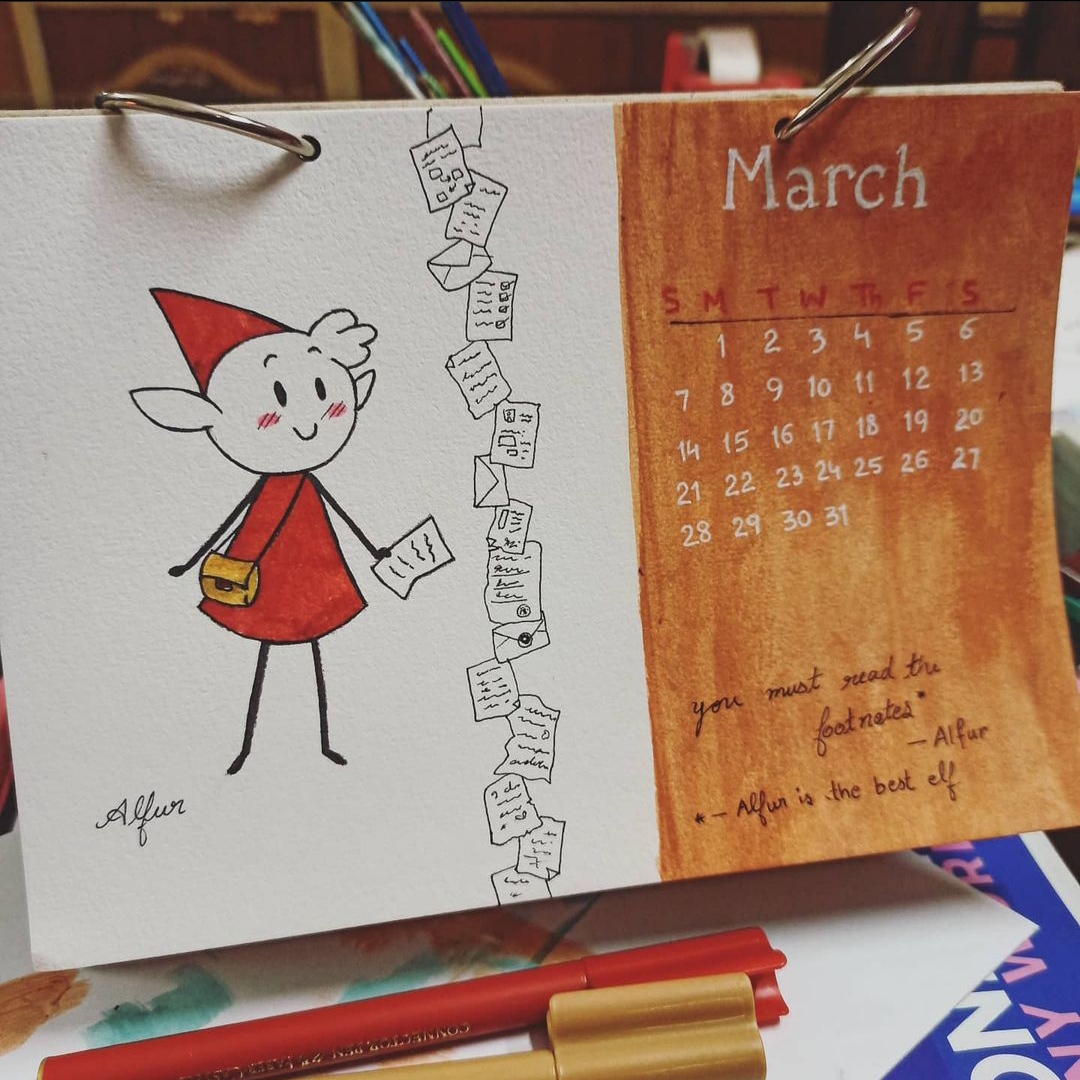 March
S M T W Th F S
1 2 3 4 5 6
7 8 9 10 11 12 13
14 15 16 17 18 19 20
21 22 23 24 25 26 27
28 29 30 31
you must read the
footnotes*
— Alfur
* — Alfur is the best elf
Alfur
CONNECTOR PEN